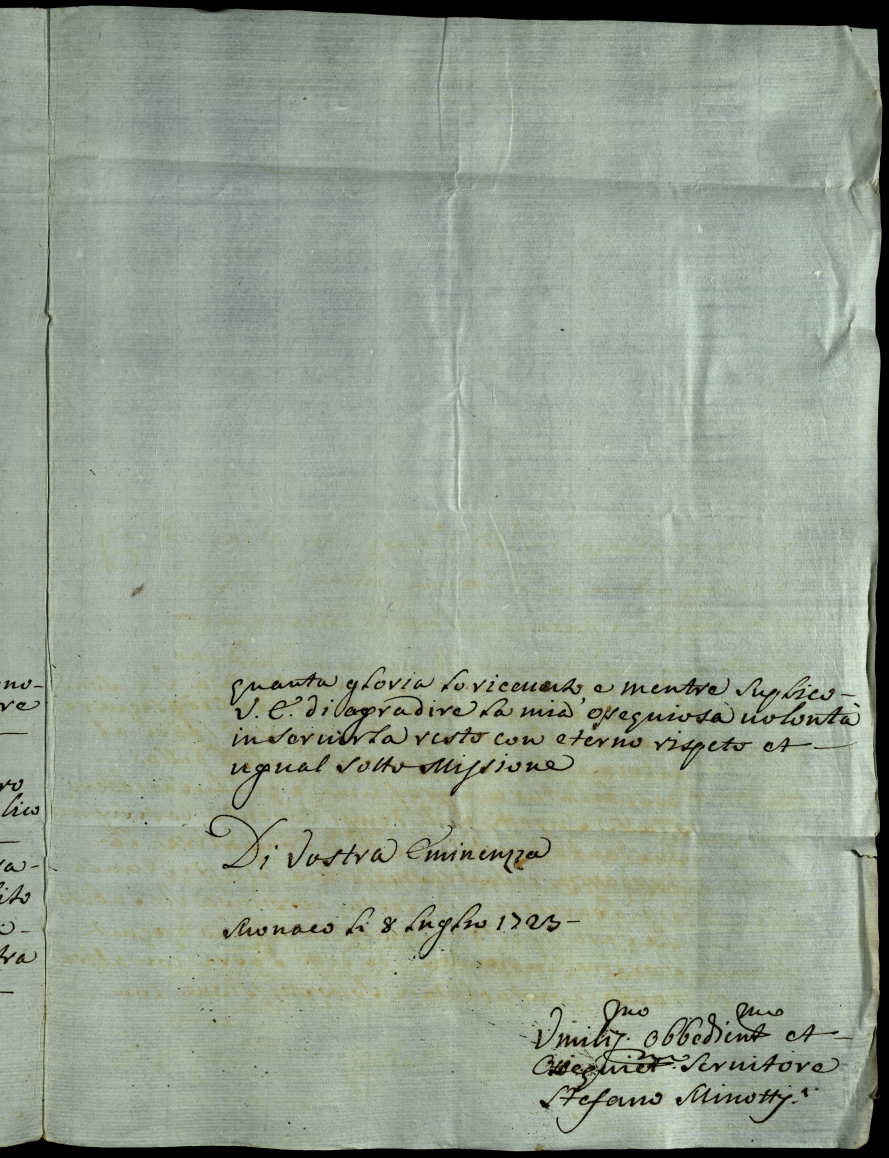 no-
re
ro
lico
ra-
ito
o-
tra
quanta gloria lo riceuuto e mentre suplico-
V. E. di agradire la mia osequiosa uolontà
in seruirla resto con eterno rispeto et
ugual sotto Missione
Di Vostra Eminenza
Monaco li 8 luglio 1723-
Vmiliss.mo obbedient.mo et
Servitore
Stefano Minotti